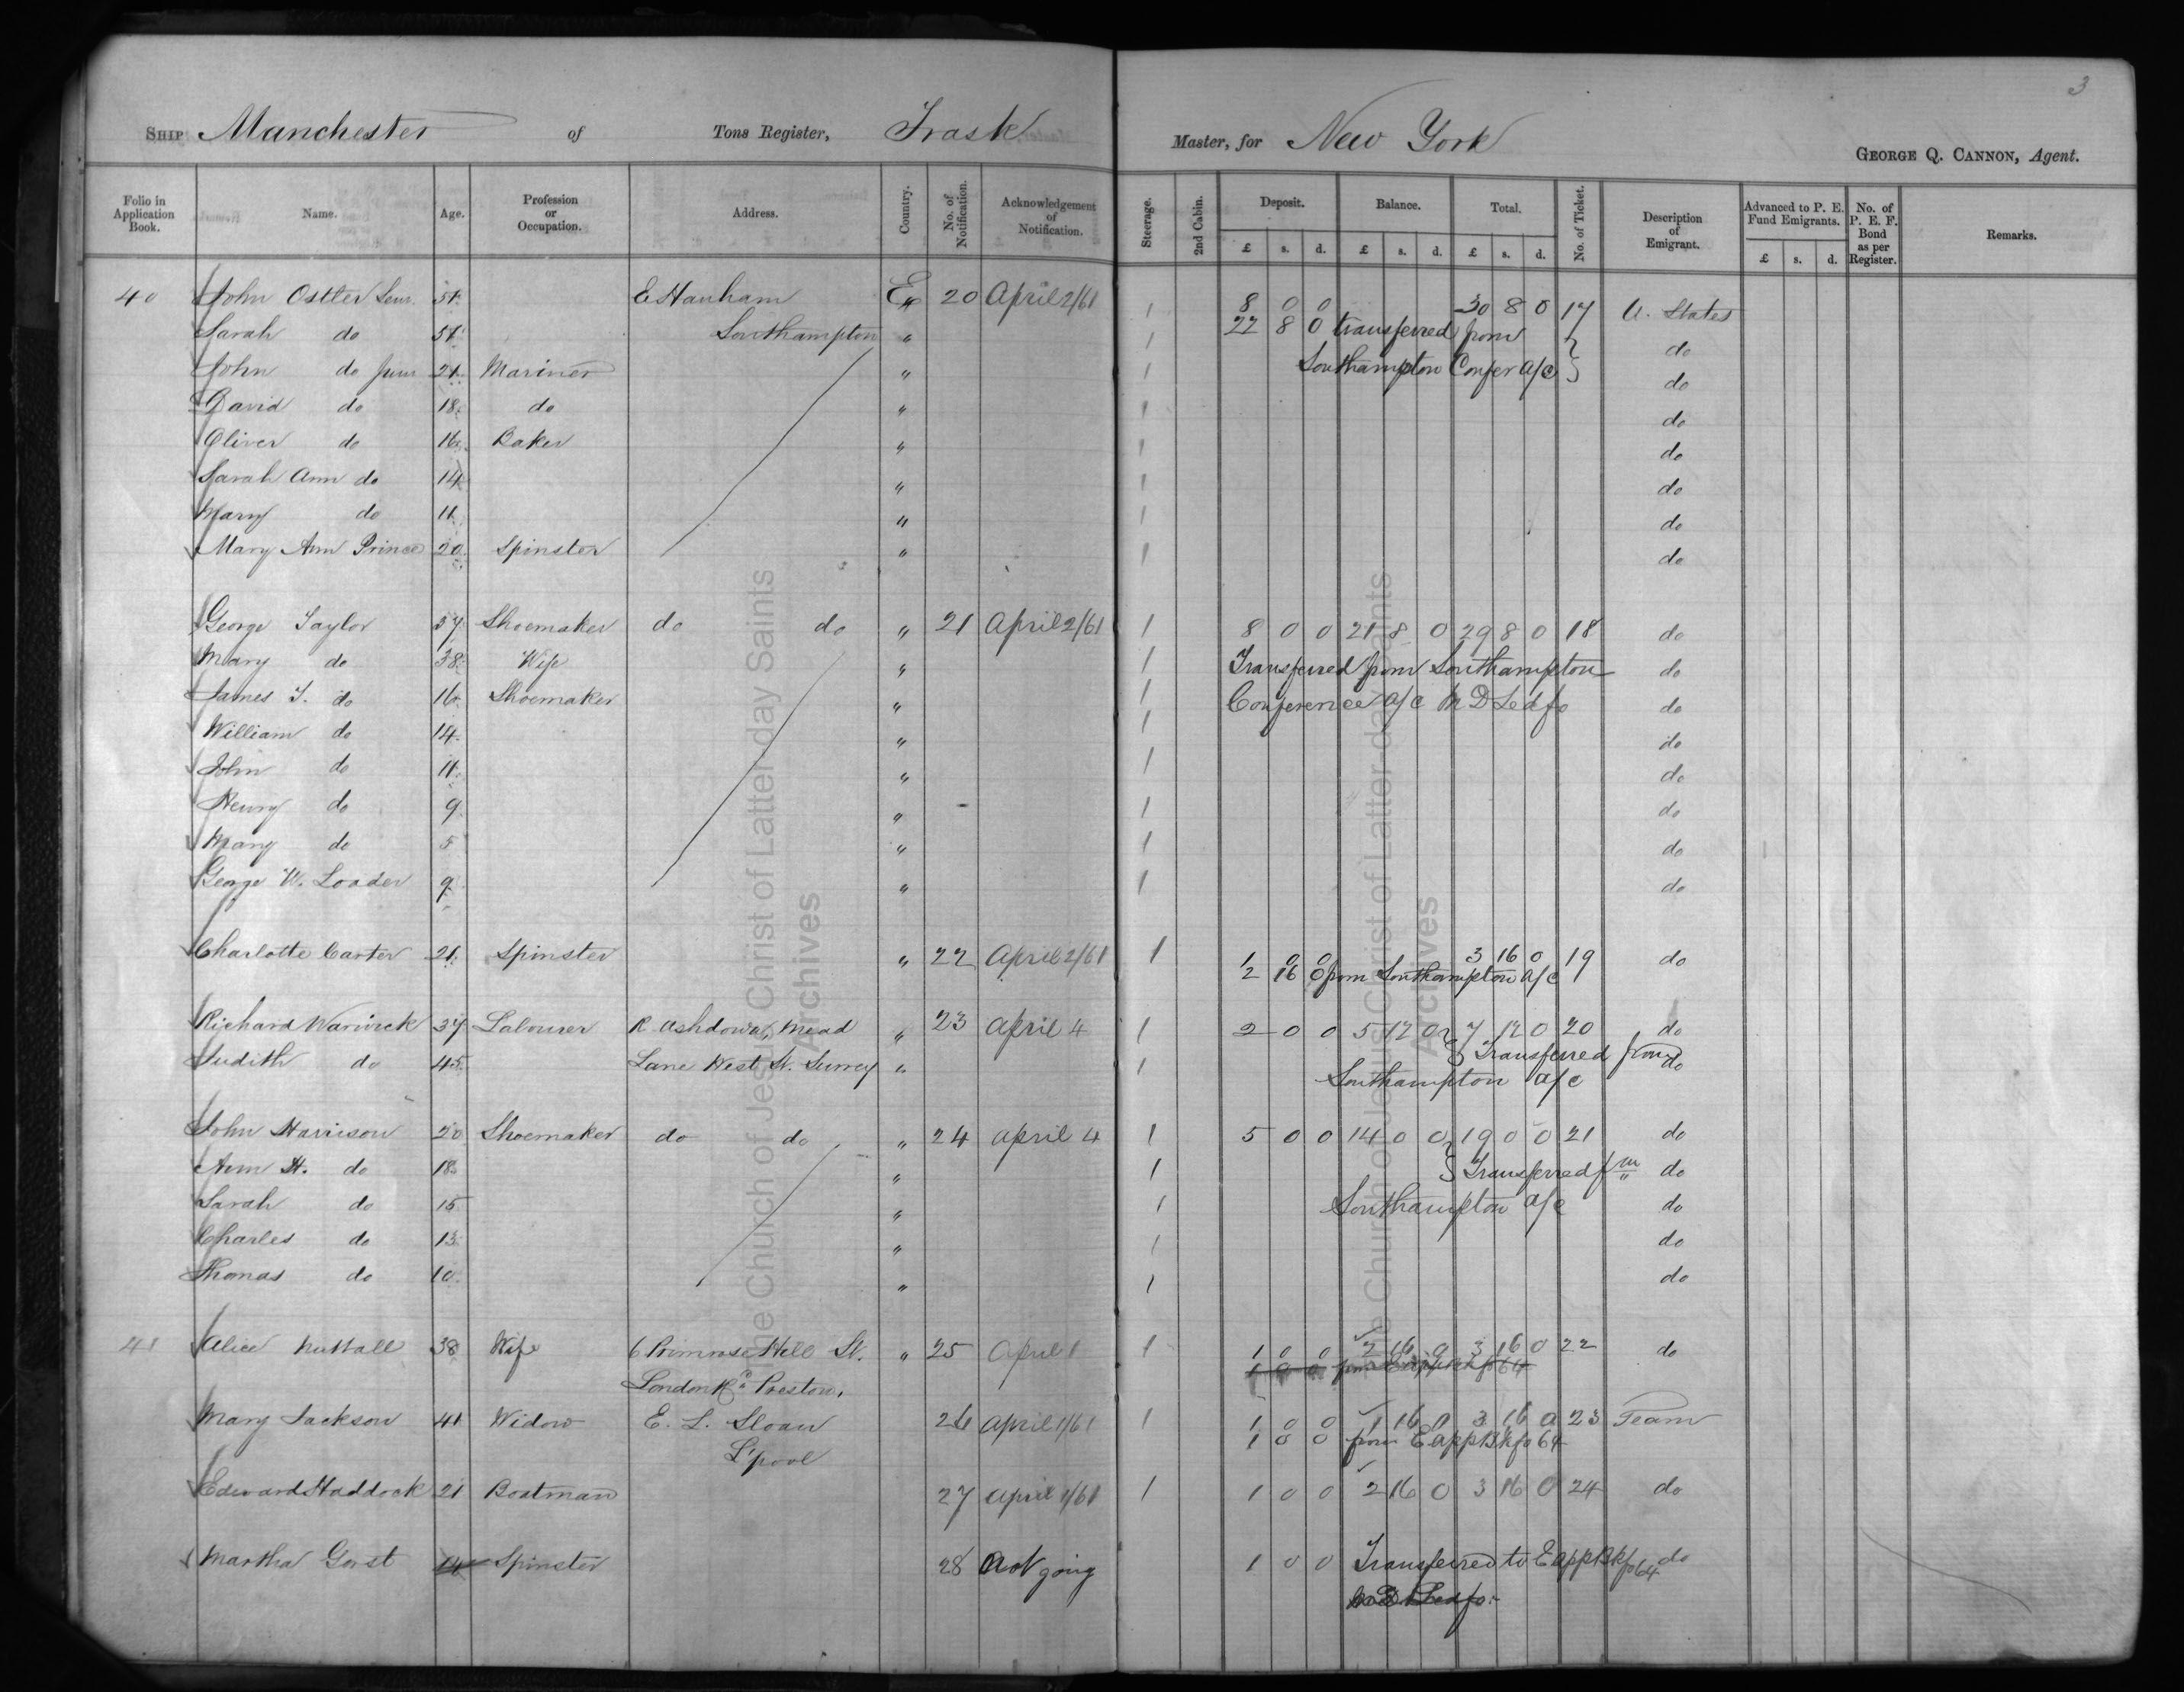 3
SHIP Manchester of Tons Register, Trask Master, for New York
GEORGE Q. CANNON, Agent.
Folio in Application Book. Name. Age. Profession or Occupation. Address. Country. No. of Notification. Acknowledgement of Notification. Steerage. 2nd Cabin. Deposit. Balance. Total. No. of Ticket. Description of Emigrant. Advanced to P. E. Fund Emigrants. No. of P. E. F. Bond as per Register. Remarks.
£ s. d. £ s. d. £ s. d. £ s. d.
40 John Ostler Senr. 51 E Hanham E 20 April 2/61 1 8 0 0 30 8 0 17 U. States
Sarah do 51 Southampton " 1 22 8 0 transferred from do
John do Junr 21 Mariner " 1 Southampton Confer a/c do
David do 18 do " 1 do
Oliver do 16 Baker " 1 do
Sarah Ann do 14 " 1 do
Mary do 11 " 1 do
Mary Ann Prince 20 Spinster " 1 do
George Taylor 57 Shoemaker do do " 21 April 2/61 1 8 0 0 21 8 0 29 8 0 18 do
Mary do 38 Wife " 1 Transferred from Southampton do
James T. do 16 Shoemaker " 1 Conference a/c M D Led fo do
William do 14 " 1 do
John do 11 " 1 do
Henry do 9 " 1 do
Mary do 5 " 1 do
George W. Loader 9 " 1 do
Charlotte Carter 21 Spinster " 22 April 2/61 1 1 0 0 3 16 0 19 do
2 16 0 from Southampton a/c
Richard Warwick 37 Labourer R Ashdown, Mead " 23 April 4 1 2 0 0 5 12 0 7 12 0 20 do
Judith do 45 Lane West St. Surrey " 1 Transferred from do
Southampton a/c
John Harrison 20 Shoemaker do do " 24 April 4 1 5 0 0 14 0 0 19 0 0 21 do
Ann H. do 18 " 1 Transferred fm do
Sarah do 15 " 1 Southampton a/c do
Charles do 13 " 1 do
Thomas do 10 " 1 do
41 Alice Nuttall 38 Wife 6 Primrose Hill St. " 25 April 1 1 1 0 0 2 16 0 3 16 0 22 do
London Rd Preston. 1 0 0 from E app Bk fo 64
Mary Jackson 41 Widow E. L. Sloan 26 April 1/61 1 1 0 0 1 16 0 3 16 0 23 Team
L'pool 1 0 0 from E app Bk fo 64
Edward Haddock 21 Boatman 27 April 1/61 1 1 0 0 2 16 0 3 16 0 24 do
Martha Gorst Spinster 28 Not going 1 0 0 Transferred to E app Bk fo 64 do
The Church of Jesus Christ of Latter-day Saints
Archives
The Church of Jesus Christ of Latter-day Saints
Archives